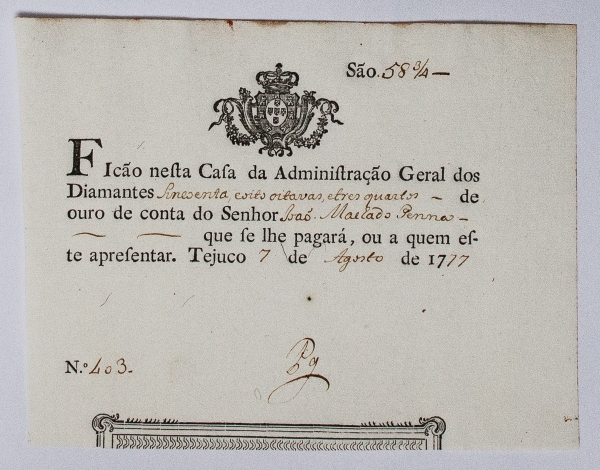 São. 58 3/4 —
FIcão neſta Caſa da Adminiſtração Geral dos
Diamantes Sincoenta, e oito oitavas, e tres quartos – de
ouro de conta do Senhor João Machado Penna –
que ſe lhe pagará, ou a quem eſ-
te apreſentar. Tejuco 7 de Agosto de 1777
N.º 403.
Pg